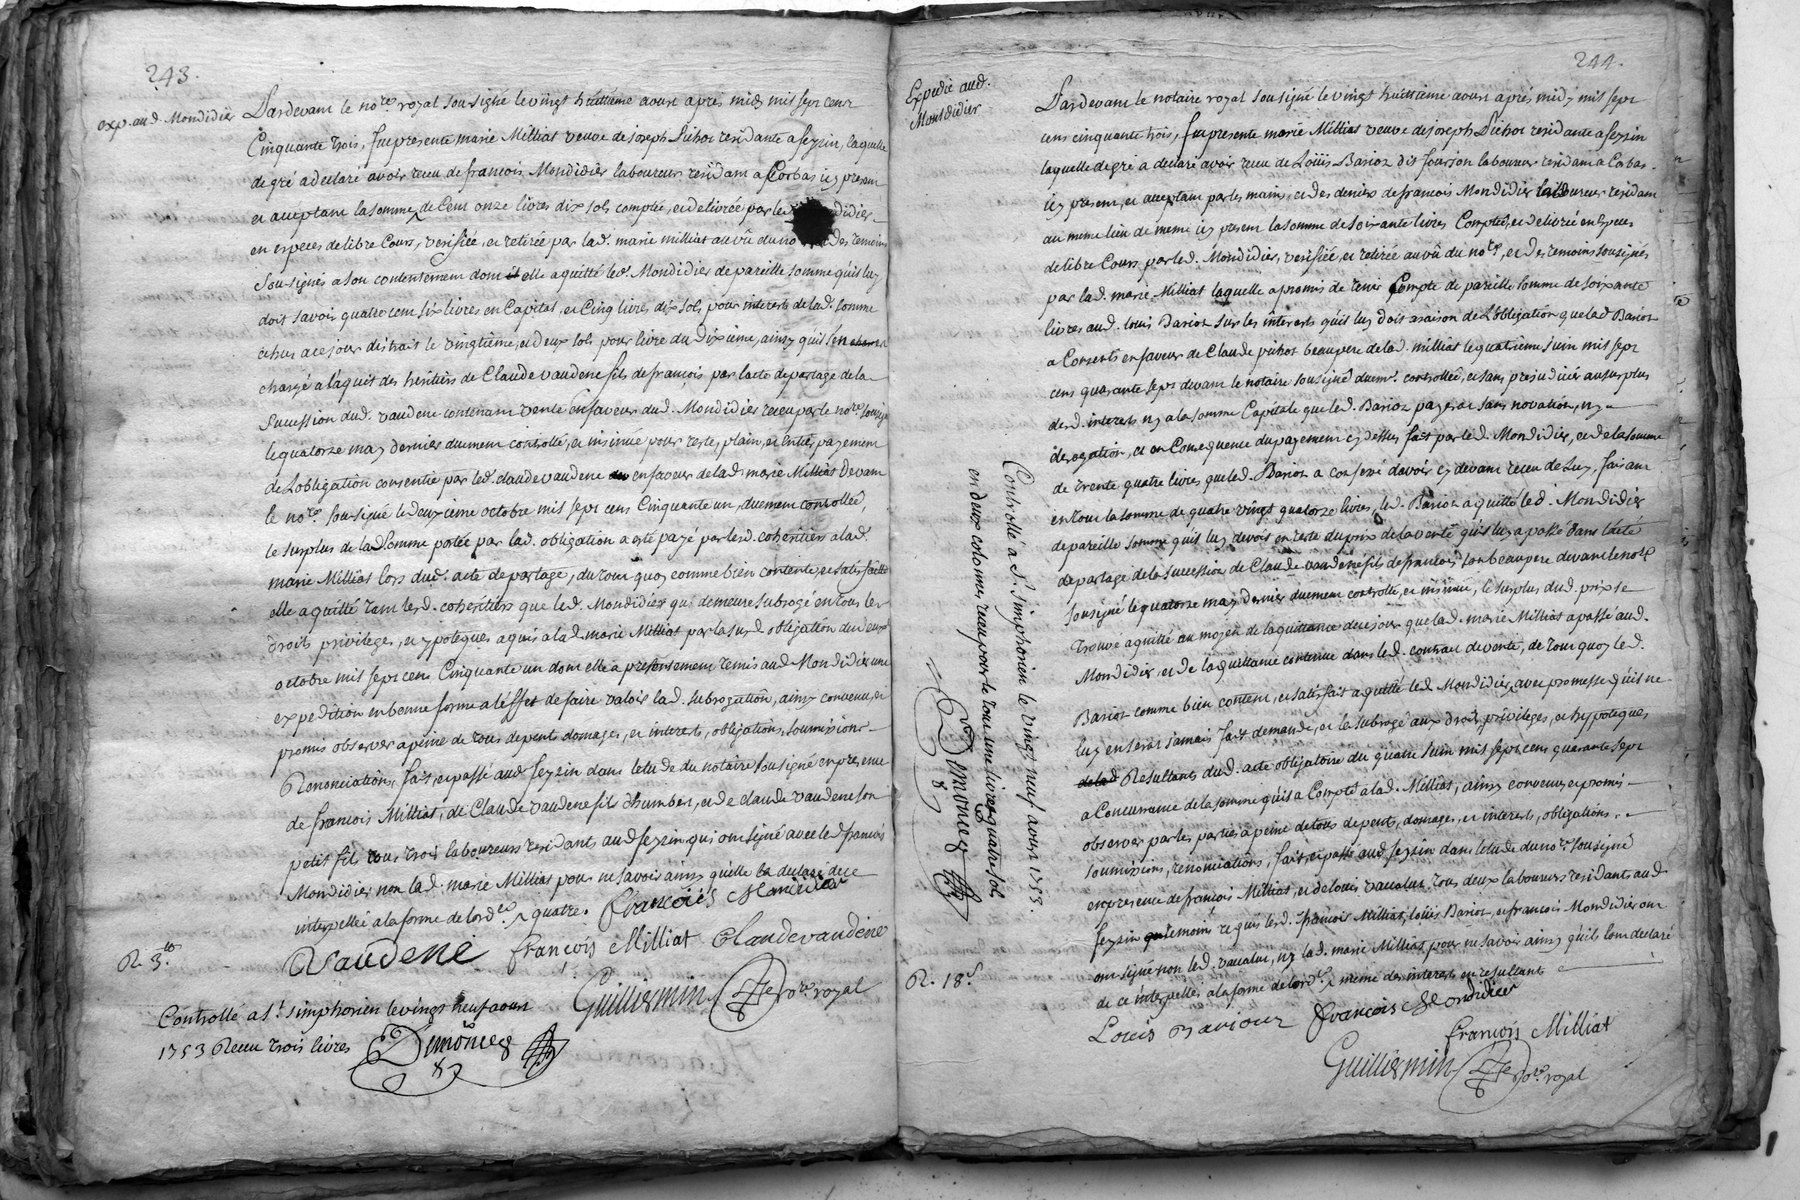 243.
exp. aud. Mondidier
Pardevant le no.re royal sousigné le vingt huitième aoust après midy mil sept cent
Cinquante trois, fut presente marie Milliat veuve de joseph Pichot residante a feyzin, laquelle
de gré a declaré avoir receu de francois Mondidier laboureur residant a Corbas icy present
et acceptant la somme de Cent onze livres dix sols comptée, et delivrée par led. didier
en especes de libre Cours, verifiée, et retirée par lad. marie milliat au vû du no des temoins
sousignés a son contentement dont elle a quitté led. Mondidier de pareille somme qu'il luy
doit savoir quatre cent six livres en Capital, et Cinq livres dix sols pour interests de lad. somme
echus a ce jour distrait le vingtième, et deux sols pour livre du dixieme, ainsy qu'il s'en
chargé a l'aquit des héritiers de Claude vaudene fils de françois par l'acte de partage de la
Succession dud. vaudene contenant vente en faveur dud. Mondidier receu par le no.re sousigné
le quatorze may dernier duement controllé, et insinué pour reste, plain, et entier payement
de L'obligation consentie par led. claude vaudene en faveur de lad. marie Milliat devant
le no.re sousigné le deuxieme octobre mil sept cens Cinquante un, duement controllée,
le surplus de lad. Somme portée par lad. obligation a esté payé par lesd. coheritiers a lad.
marie Milliat lors dud. acte de partage, du tout quoy comme bien contente, et satisfaitte
elle a quitté tant lesd. cohéritiers que led. Mondidier qui demeure subrogé en tous les
droits privileges, et ypoteques aquis a lad. marie Milliat par la susd. obligation du deux
octobre mil sept cens Cinquante un dont elle a presentement remis aud. Mondidier une
expedition en bonne forme a l'effet de faire valoir lad. subrogation, ainsy convenu, et
promis observer a peine de tous depens domages, et interests, obligations, soumissions
Renonciations, fait, et passé aud. feyzin dans l'etude du notaire sousigné en presence
de francois Milliat, de Claude vaudene fils d'humbert, et de claude vaudene son
petit fils tous trois laboureurs residants aud. feyzin qui ont signé avec led. francois
Mondidier non lad. marie Milliat pour ne savoir ainsy qu'elle l'a declaré de ce
interpellé a la forme de l'ord.ce quatre. francois Mondidier
Vaudene francois Milliat Claudevaudene
R. 3.# Guillermin no.re royal
Controllé a S.t simphorien le vingt neuf aoust
1753 Receu trois livres Demonceg
244.
Expedié aud.
Mondidier
Pardevant le notaire royal sousigné le vingt huitième aoust après midy mil sept
cens cinquante trois, fut presente marie Milliat veuve de joseph Pichot residante a feyzin
laquelle de gré a declaré avoir receu de Loüis Bariot dit fourson laboureur residant a Corbas
icy present, et acceptant par les mains, et des deniers de francois Mondidier laboureur residant
au meme lieu de meme icy present la somme de soixante livres Comptée, et delivrée en Especes
de libre Cours par led. Mondidier, verifiée, et retirée au vû du no.re, et des temoins sousignés
par lad. marie Milliat laquelle a promis de tenir Compte de pareille somme de soixante
livres aud. louis Bariot sur les interests qu'il luy doit a raison de L'obligation que led. Bariot
a Consenti en faveur de Claude pichot beaupere de lad. milliat le quatrième juin mil sept
cens quarante sept devant le notaire sousigné duem.t controllée, et sans prejudicier au surplus
desd. interests ny a la somme Capitale que led. Bariot payera sans novation, ny
derogation, et en Consequence du payement cy dessus fait par led. Mondidier, et de la somme
de trente quatre livres que led. Bariot a confessé d'avoir cy devant receu de Luy, faisant
en tout la somme de quatre vingt quatorze livres, led. Bariot a quitté led. Mondidier
de pareille somme qu'il luy devoit en reste du prix de la vente qu'il luy a passé dans l'acte
de partage de la succession de Claude vaudene fils de francois son beaupere devant le no.re
sousigné le quatorze may dernier duement controllé, et insinué, le surplus dud. prix se
trouve aquitté au moyen de la quittance de ce jour que lad. marie Milliat a passé aud.
Mondidier, et de la quittance contenue dans led. contrat de vente, de tout quoy led.
Bariot comme bien content, et satisfait a quitté led. Mondidier, avec promesse qu'il ne
luy en sera jamais fait demande, et le subrogé aux droits, privileges, et hyppoteques
Resultants dud. acte obligatoire du quatre juin mil sept cens quarante sept
a Concurrance de la somme qu'il a Compté a lad. Milliat, ainsy convenu, et promis
observer par les parties a peine de tous depents, domages, et interests, obligations,
soumissions, renonciations, fait, et passé aud. feyzin dans l'etude du no.re sousigné
en presence de francois Milliat, et de louis vaualut tous deux laboureurs residants aud.
feyzin temoins requis led. francois Milliat, loüis Bariot, et francois Mondidier ont
ont signé non led. vaualut, ny lad. marie Milliat pour ne savoir ainsy qu'ils l'ont declaré
de ce interpellés a la forme de l'ord.ce meme des interests en resultant
R. 18.s
Louis Bariout francois Mondidier
francois Milliat
Guillermin no.re royal
Controllé a S.t simphorien le vingt neuf aoust 1753.
en deux colomnes receu pour le tout une livre quatre sol
Demonceg